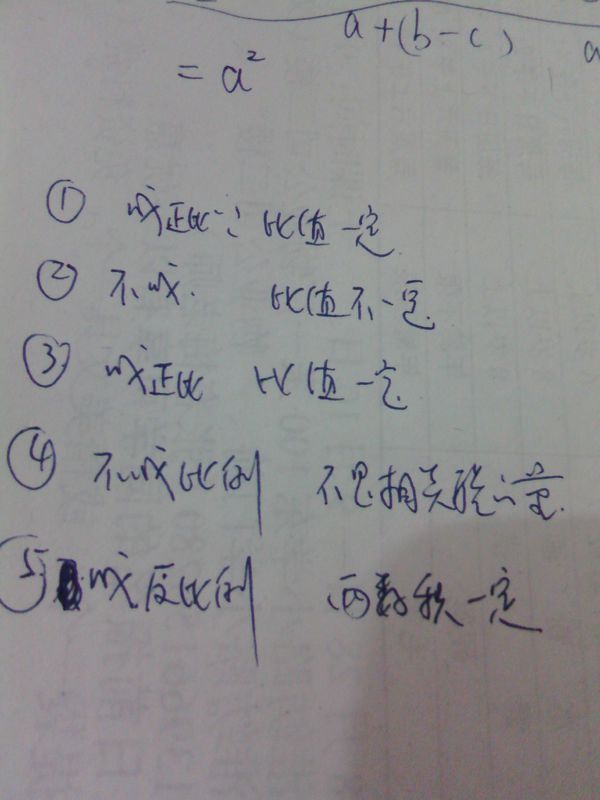 a+(b-c) a
= a²
① 成正比∵比值一定
② 不成. 比值不一定.
③ 成正比 比值一定.
④ 不成比例 不是相关联的量.
⑤ 成反比例 两数积一定